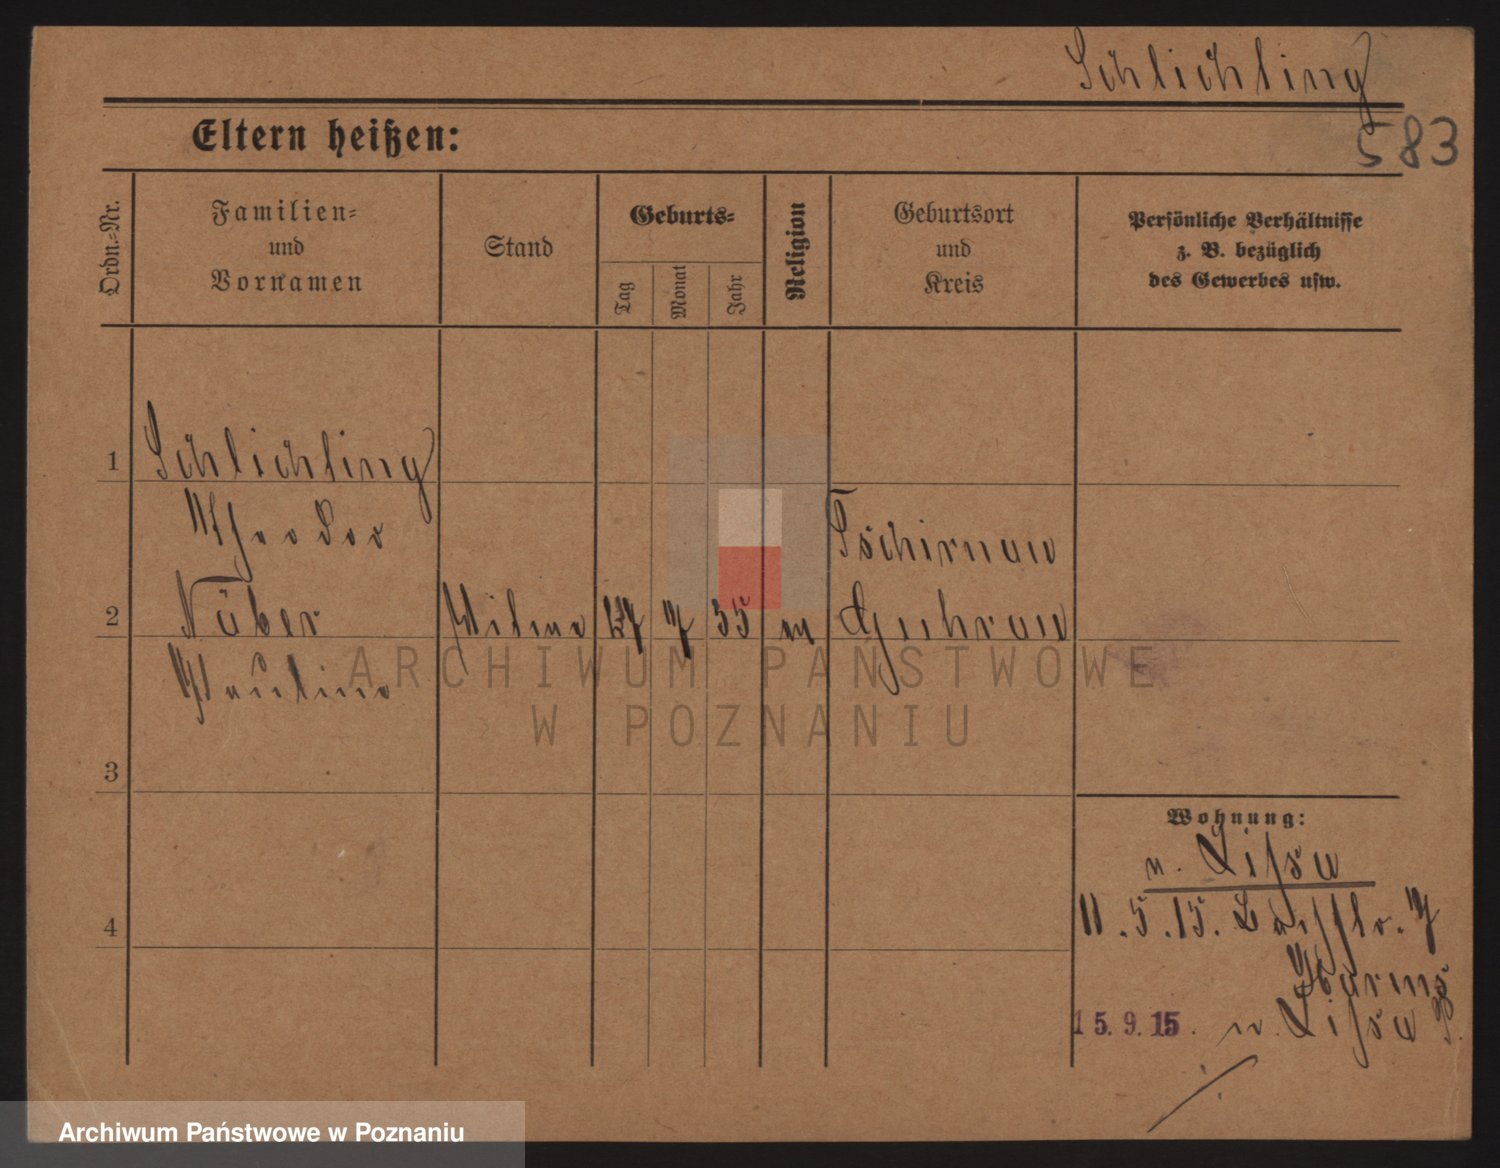 Schlichting
583
Eltern heißen:
Ordn.-Nr.
Familien- und Vornamen
Stand
Geburts-
Tag
Monat
Jahr
Religion
Geburtsort und Kreis
Persönliche Verhältnisse z. B. bezüglich des Gewerbes usw.
1
Schlichting
Theodor
Tschirnau
2
Näber
Witwe
27
7
35
Guhrau
Pauline
3
Wohnung:
n. Lissa
4
11.5.15.
7
15.9.15. Lissa
ARCHIWUM PAŃSTWOWE
W POZNANIU
Archiwum Państwowe w Poznaniu